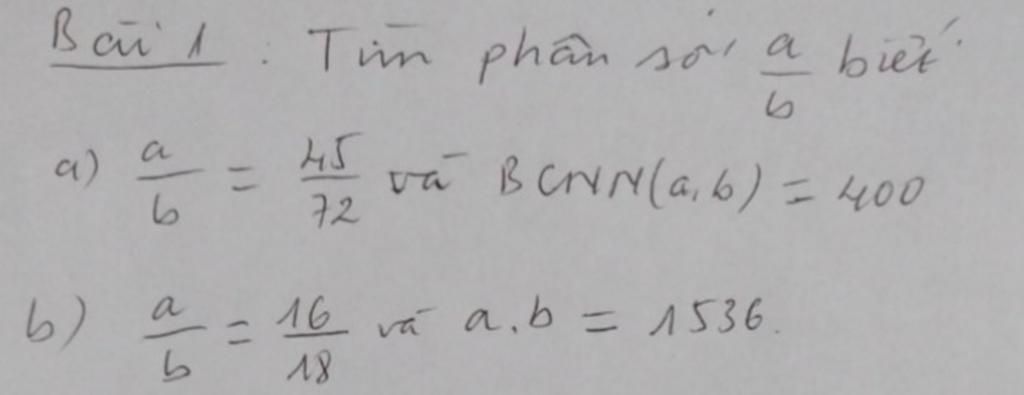 Bài 1 : Tìm phân số a/b biết
a) a/b = 45/72 và BCNN(a,b) = 400
b) a/b = 16/18 và a.b = 1536.